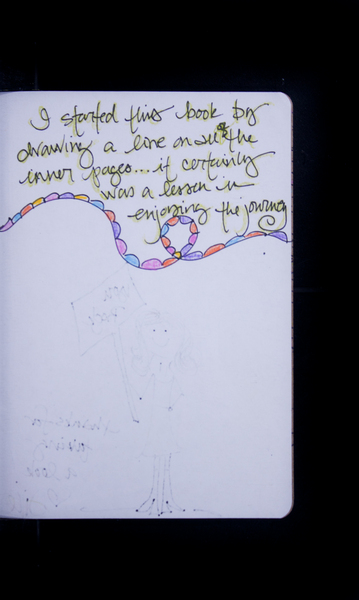 I started this book by
drawing a line on all of the
inner pages... it certainly
was a lesson in
enjoying the journey